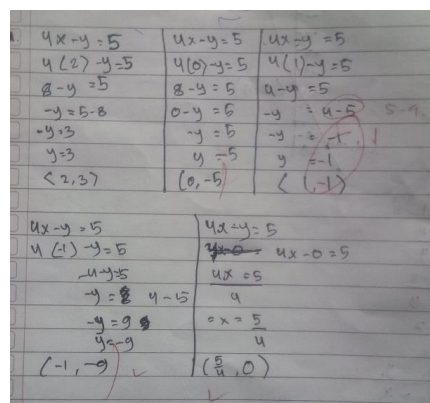 4x-y=5
4(2)-y=5
8-y=5
-y=5-8
-y=3
y=3
(2,3)
4x-y=5
4(0)-y=5
8-y=5
0-y=5
-y=5
y=-5
(0,-5)
4x-y=5
4(1)-y=5
4-y=5
-y=4-5
5-4
-y=-1
y=-1
(1,-1)
4x-y=5
4(-1)-y=5
-4-y=5
-y=4-5
-y=9
y=-9
(-1,-9)
4x-y=5
4x-0=5
4x=5
4
=x=5
4
(5/4,0)